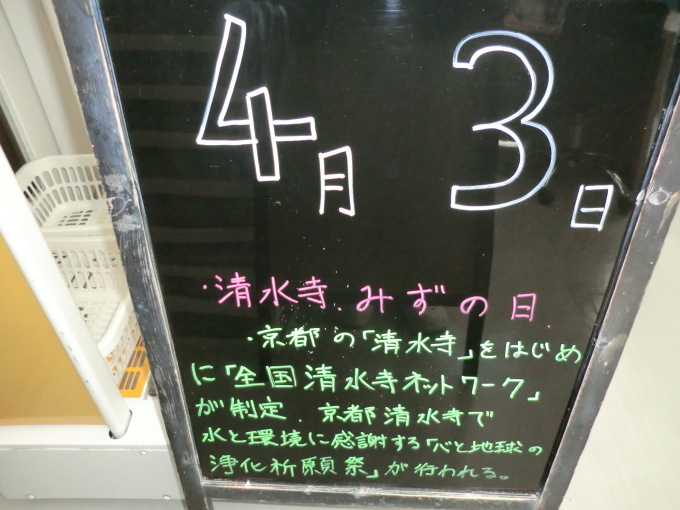 4月 3日
・清水寺.みずの日.
・京都の「清水寺」をはじめ
に「全国清水寺ネットワーク」
が制定．京都清水寺で
水と環境に感謝する「心と地球の
浄化祈願祭」が行われる。